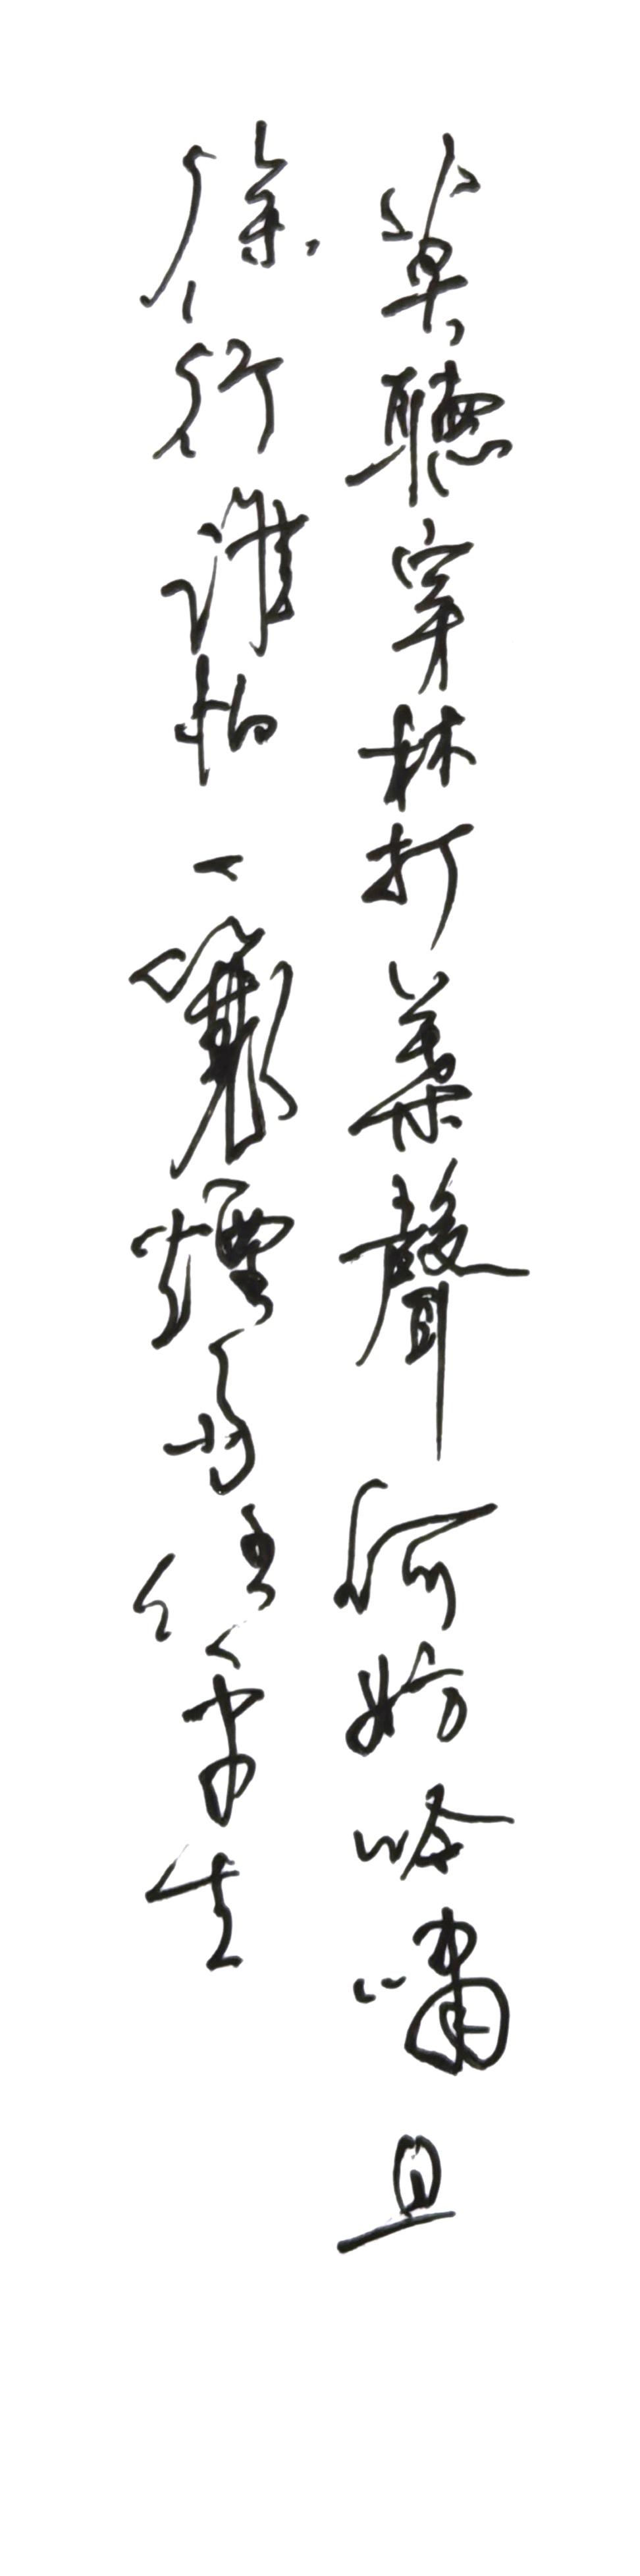 莫聽穿林打葉聲何妨吟嘯且
徐行誰怕一蓑煙雨任平生